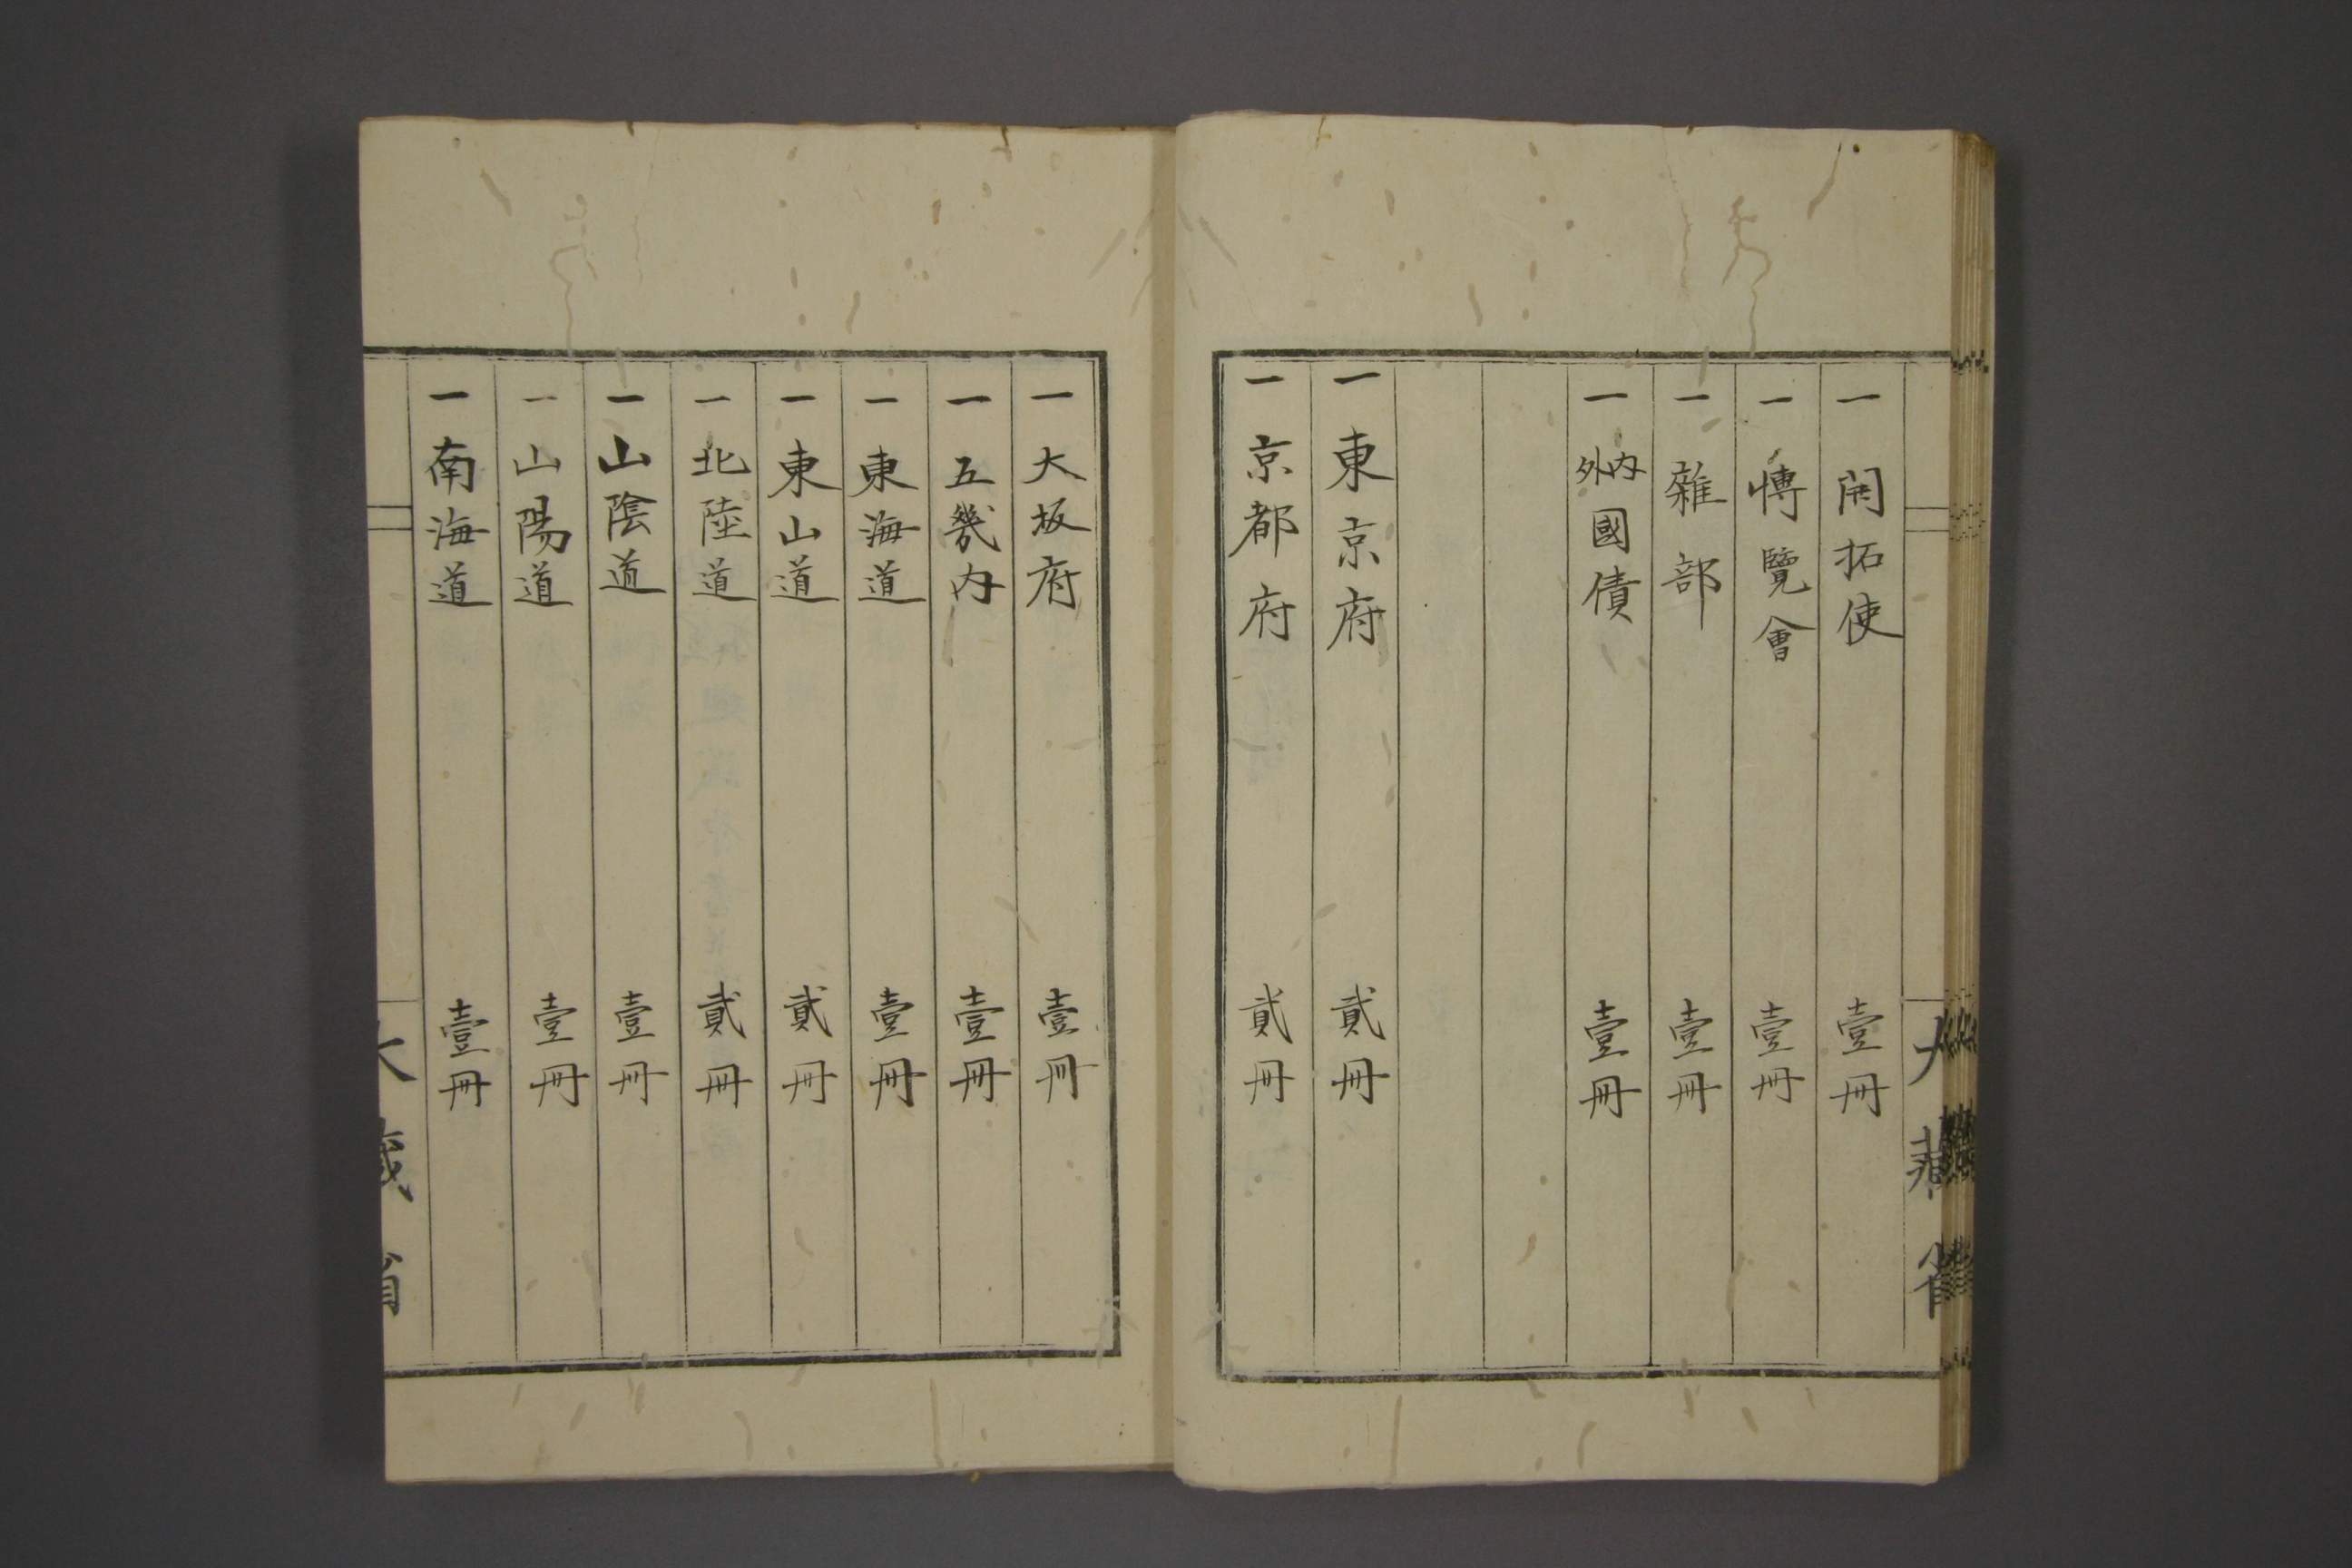 一 開拓使 壹冊
一 博覽會 壹冊
一 雜部 壹冊
一 内外國債 壹冊
一 東京府 貳冊
一 京都府 貳冊
大藏省
一 大坂府 壹冊
一 五幾内 壹冊
一 東海道 壹冊
一 東山道 貳冊
一 北陸道 貳冊
一 山陰道 壹冊
一 山陽道 壹冊
一 南海道 壹冊
大藏省